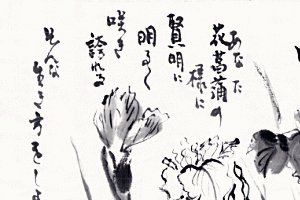 あなた
花菖蒲の
様に
賢明に
明るく
咲き
誇れる
そんな
生き方をし